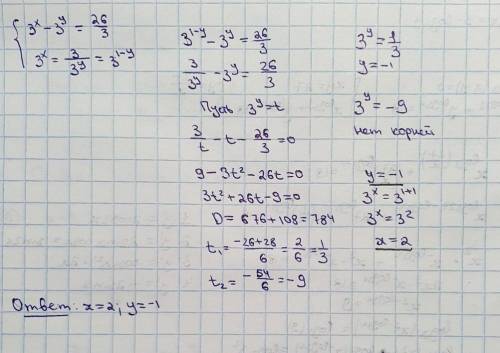 { 3ˣ - 3ʸ = 26/3
3ˣ = 3/3ʸ = 3¹⁻ʸ
3¹⁻ʸ - 3ʸ = 26/3
3/3ʸ - 3ʸ = 26/3
Пусть 3ʸ = t
3/t - t - 26/3 = 0
9 - 3t² - 26t = 0
3t² + 26t - 9 = 0
D = 676 + 108 = 784
t₁ = (-26+28)/6 = 2/6 = 1/3
t₂ = -54/6 = -9
3ʸ = 1/3
y = -1
3ʸ = -9
нет корней
y = -1
3ˣ = 3¹⁺¹
3ˣ = 3²
x = 2
Ответ: x = 2; y = -1